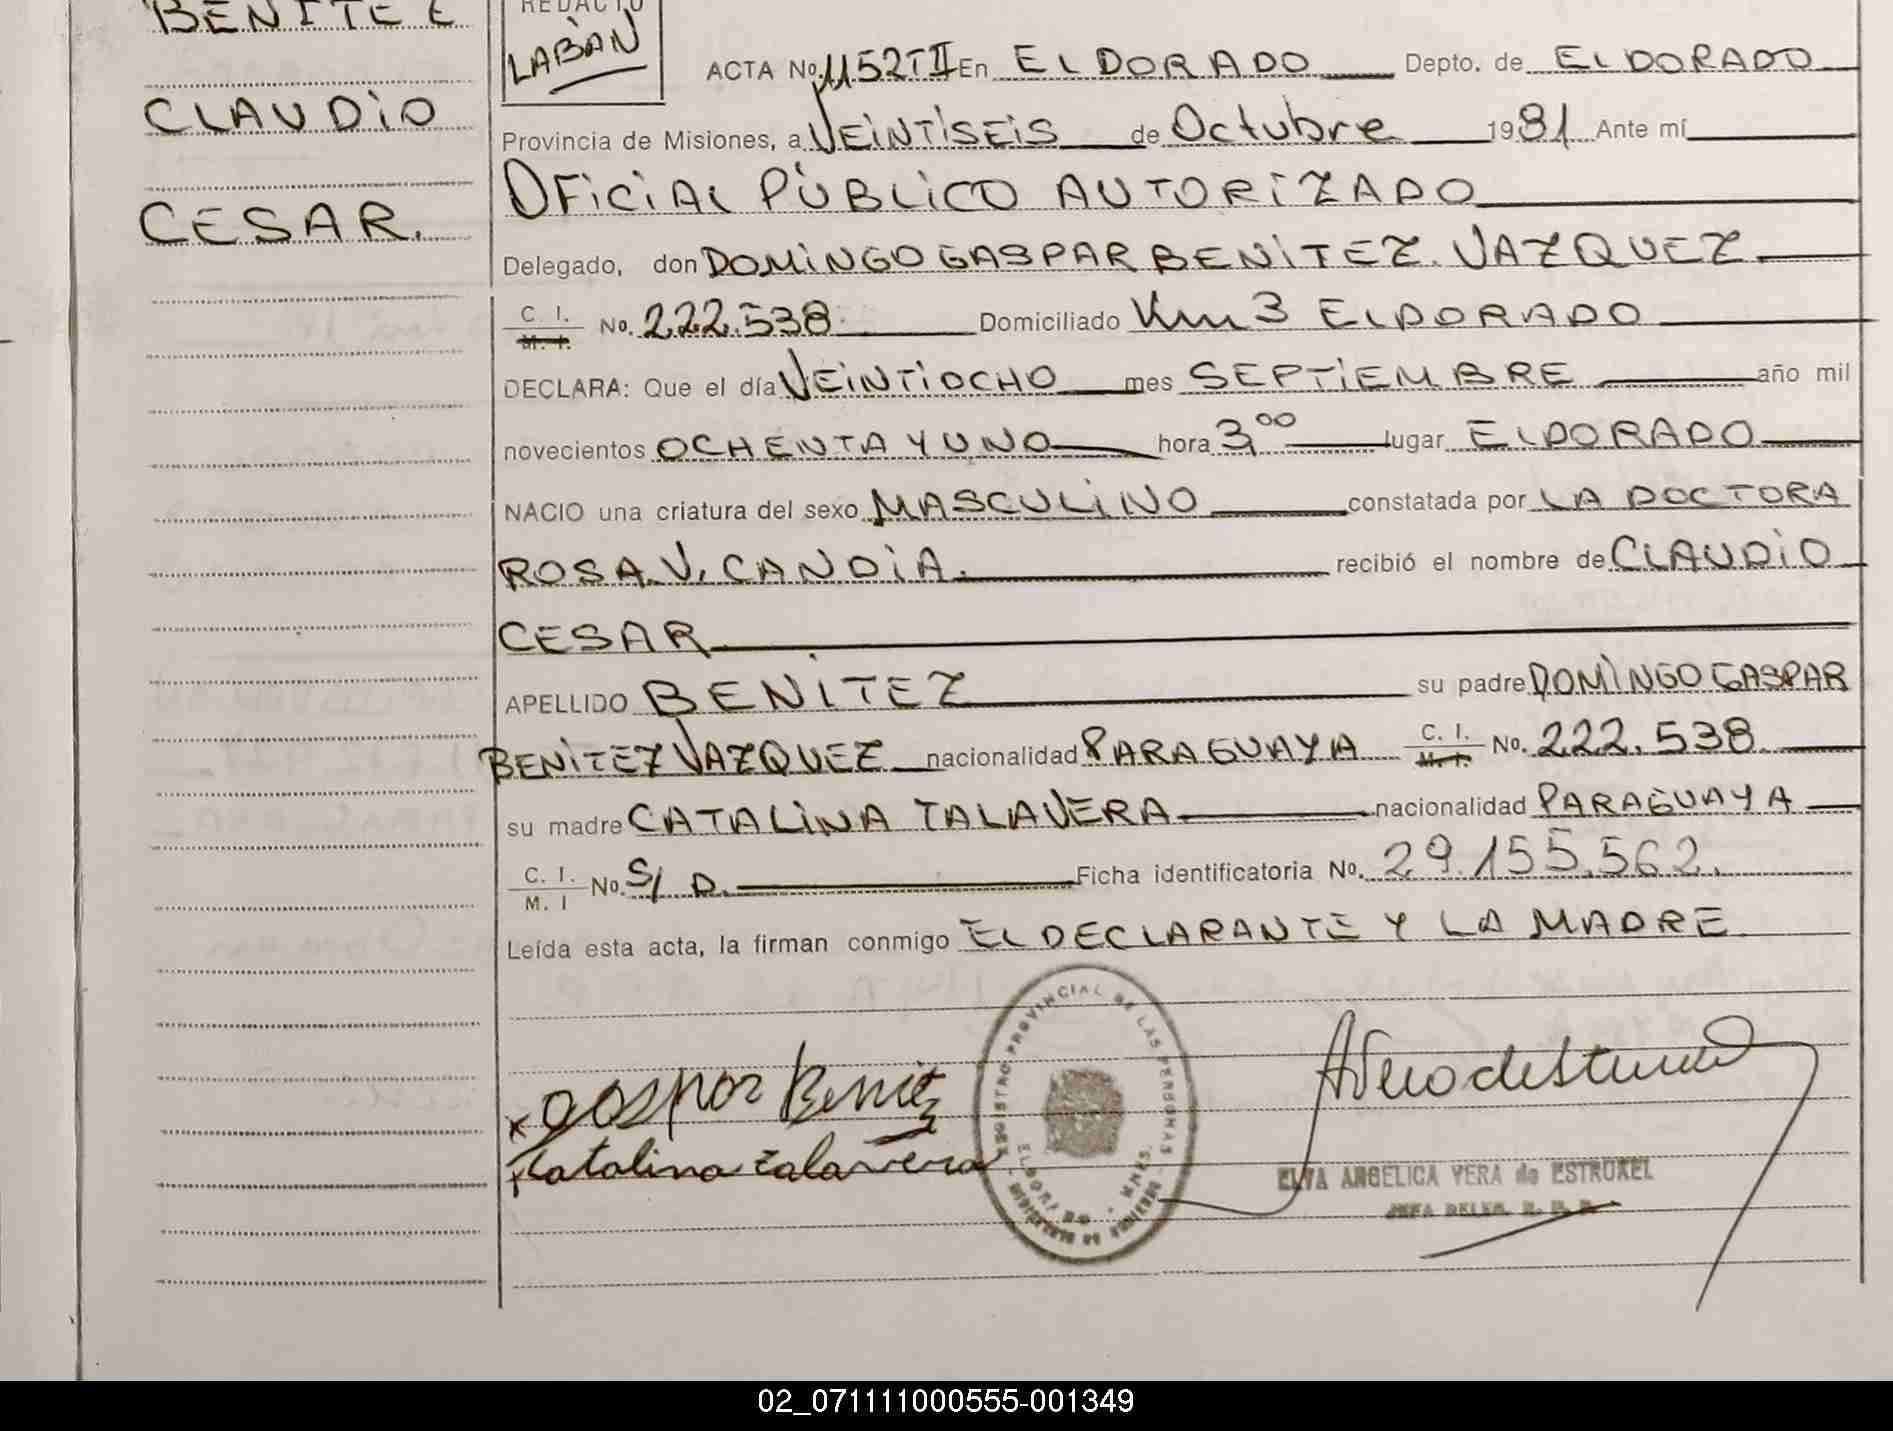 BENITEZ
REDACTO
LABAN
CLAUDIO
CESAR.
ACTA No. 1152 T II En ELDORADO Depto. de ELDORADO
Provincia de Misiones, a VEINTISEIS de Octubre 1981 Ante mí
OFICIAL PÚBLICO AUTORIZADO
Delegado, don DOMINGO GASPAR BENITEZ VAZQUEZ
C. I. M. I. No. 222.538 Domiciliado Km 3 ELDORADO
DECLARA: Que el día VEINTIOCHO mes SEPTIEMBRE año mil
novecientos OCHENTA Y UNO hora 3,00 lugar ELDORADO
NACIO una criatura del sexo MASCULINO constatada por LA DOCTORA
ROSA. V. CANDIA. recibió el nombre de CLAUDIO
CESAR
APELLIDO BENITEZ su padre DOMINGO GASPAR
BENITEZ VAZQUEZ nacionalidad PARAGUAYA C. I. M. I. No. 222.538
su madre CATALINA TALAVERA nacionalidad PARAGUAYA
C. I. M. I No. S/D. Ficha identificatoria No. 29.155.562.
Leída esta acta, la firman conmigo EL DECLARANTE Y LA MADRE
x gaspar Benitez
x Catalina talavera
REGISTRO PROVINCIAL DE LAS PERSONAS
ELDORADO MNES.
ELVA ANGELICA VERA de ESTRUXEL
02_071111000555-001349